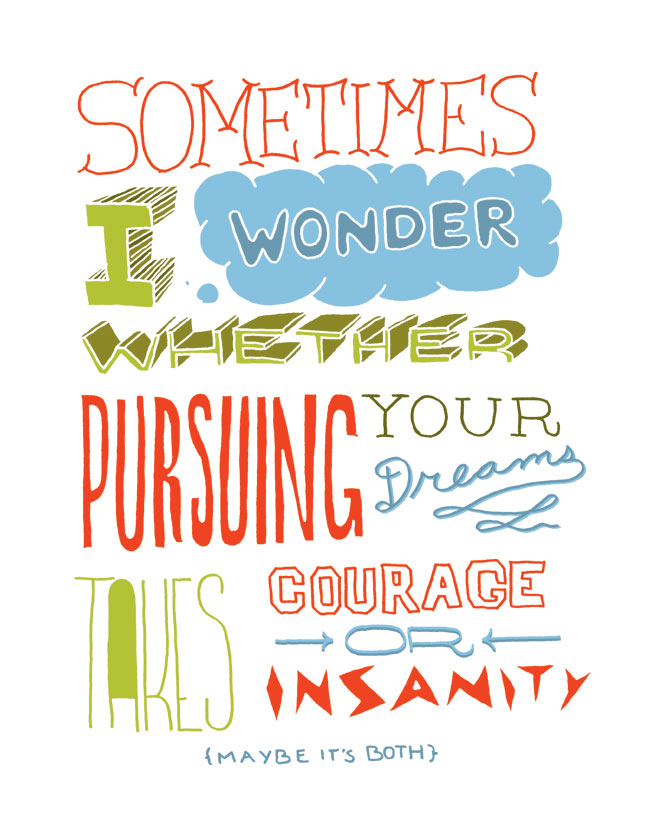 SOMETIMES
I WONDER
WHETHER
PURSUING YOUR
Dreams
TAKES COURAGE
OR
INSANITY
{MAYBE IT'S BOTH}